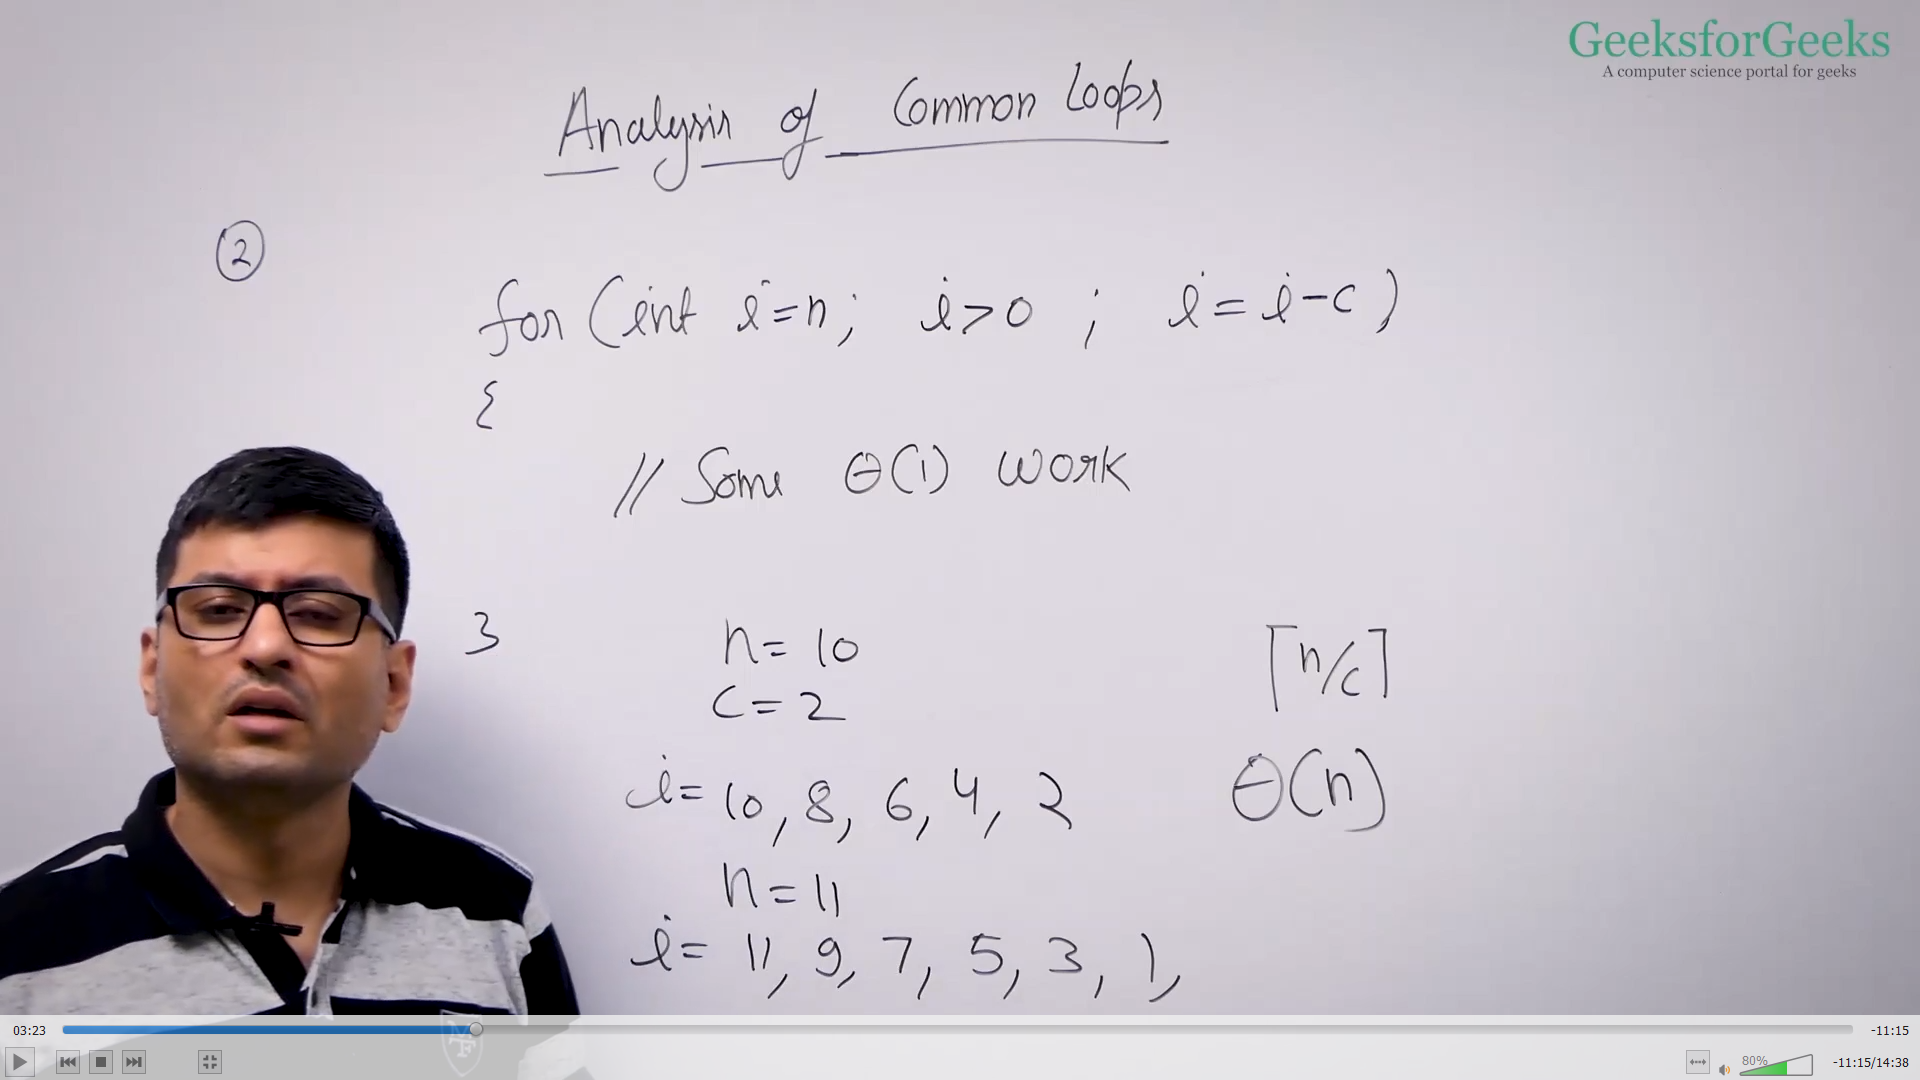 GeeksforGeeks
A computer science portal for geeks
Analysis of Common Loops
②
for (int i=n; i>0 ; i=i-c)
{
// Some θ(1) work
3
n= 10
c= 2
⌈n/c⌉
i= 10, 8, 6, 4, 2
θ(n)
n= 11
i= 11, 9, 7, 5, 3, 1,
03:23
-11:15
80%
-11:15/14:38